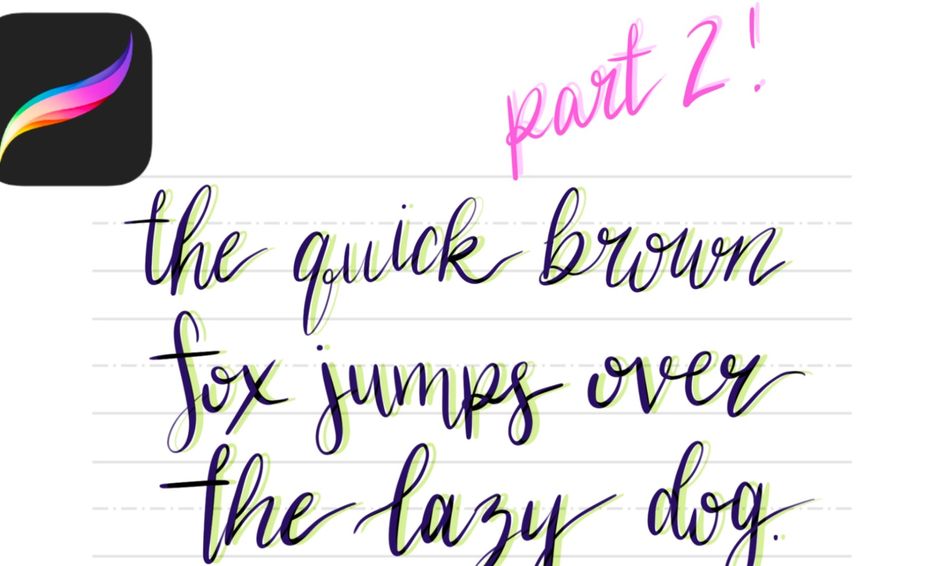 part 2!
the quick brown
fox jumps over
the lazy dog.